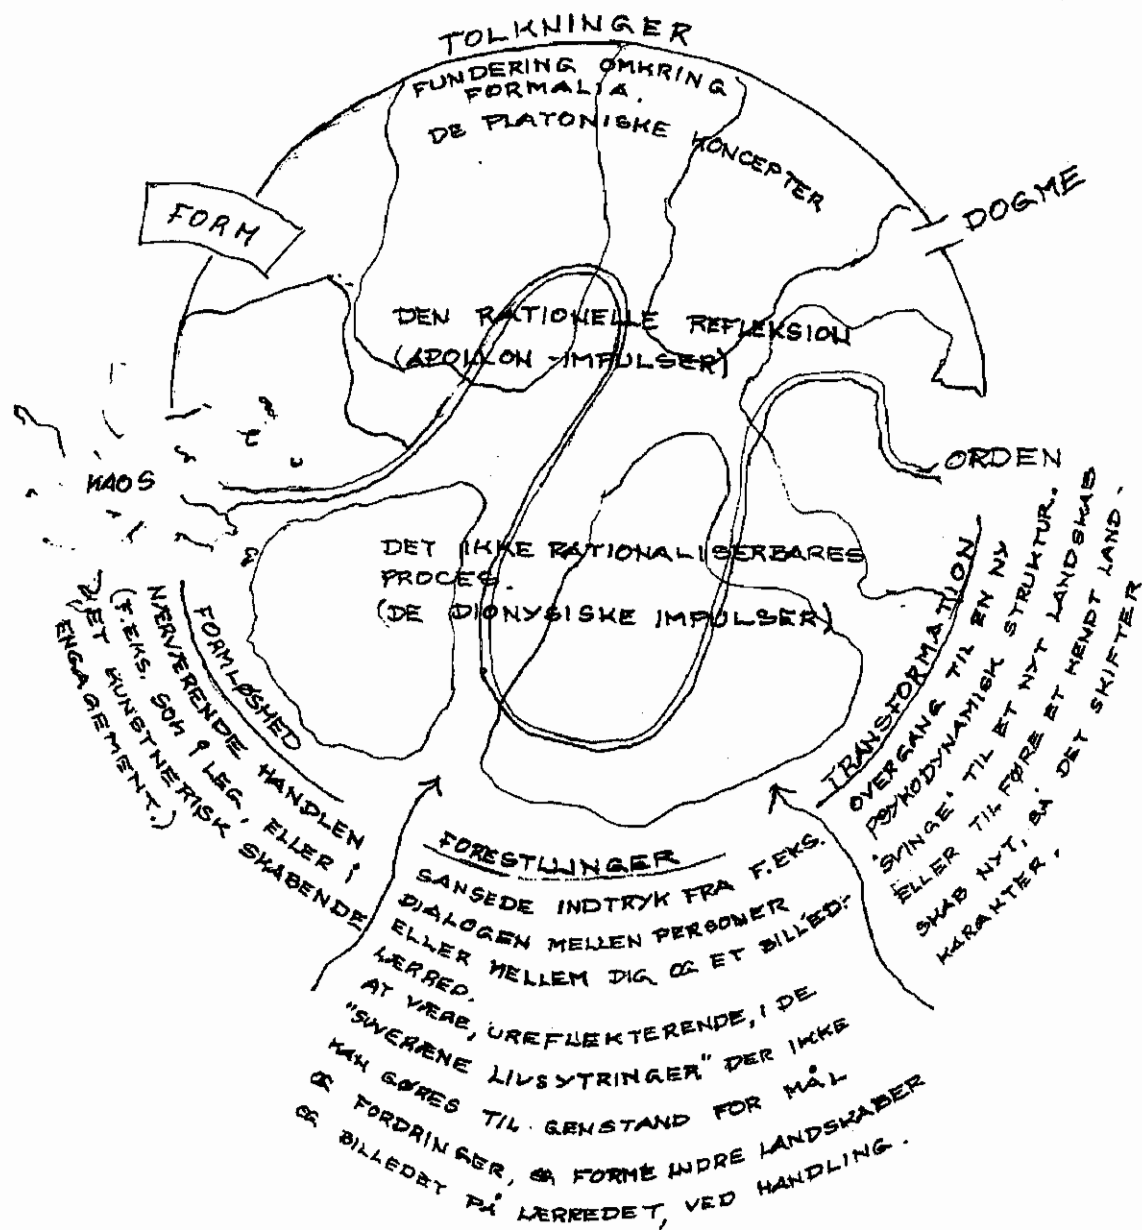 TOLKNINGER
FUNDERING OMKRING
FORMALIA.
DE PLATONISKE KONCEPTER
FORM
DOGME
DEN RATIONELLE REFLEKSION
(APOLLON-IMPULSER)
KAOS
ORDEN
DET IKKE RATIONALISERBARES
PROCES.
(DE DIONYSISKE IMPULSER)
FORMLØSHED
NÆRVÆRENDE HANDLEN
(F.EKS. SOM I LEG, ELLER I
ET KUNSTNERISK SKABENDE
ENGAGEMENT.)
FORESTLLINGER
SANSEDE INDTRYK FRA F.EKS.
DIALOGEN MELLEN PERSONER
ELLER MELLEM DIG OG ET BILLED-
LÆRRED.
AT VÆRE, UREFLEKTERENDE, I DE
"SUVERÆNE LIVSYTRINGER" DER IKKE
KAN GØRES TIL GENSTAND FOR MÅL
OG FORDRINGER, OG FORME INDRE LANDSKABER
OG BILLEDET PÅ LÆRREDET, VED HANDLING.
TRANSFORMATION
OVERGANG TIL EN NY
PSYKODYNAMISK STRUKTUR.
'SVINGE' TIL ET NYT LANDSKAB
ELLER TIL FØRE ET KENDT LAND-
SKAB NYT, SÅ DET SKIFTER
KARAKTER.